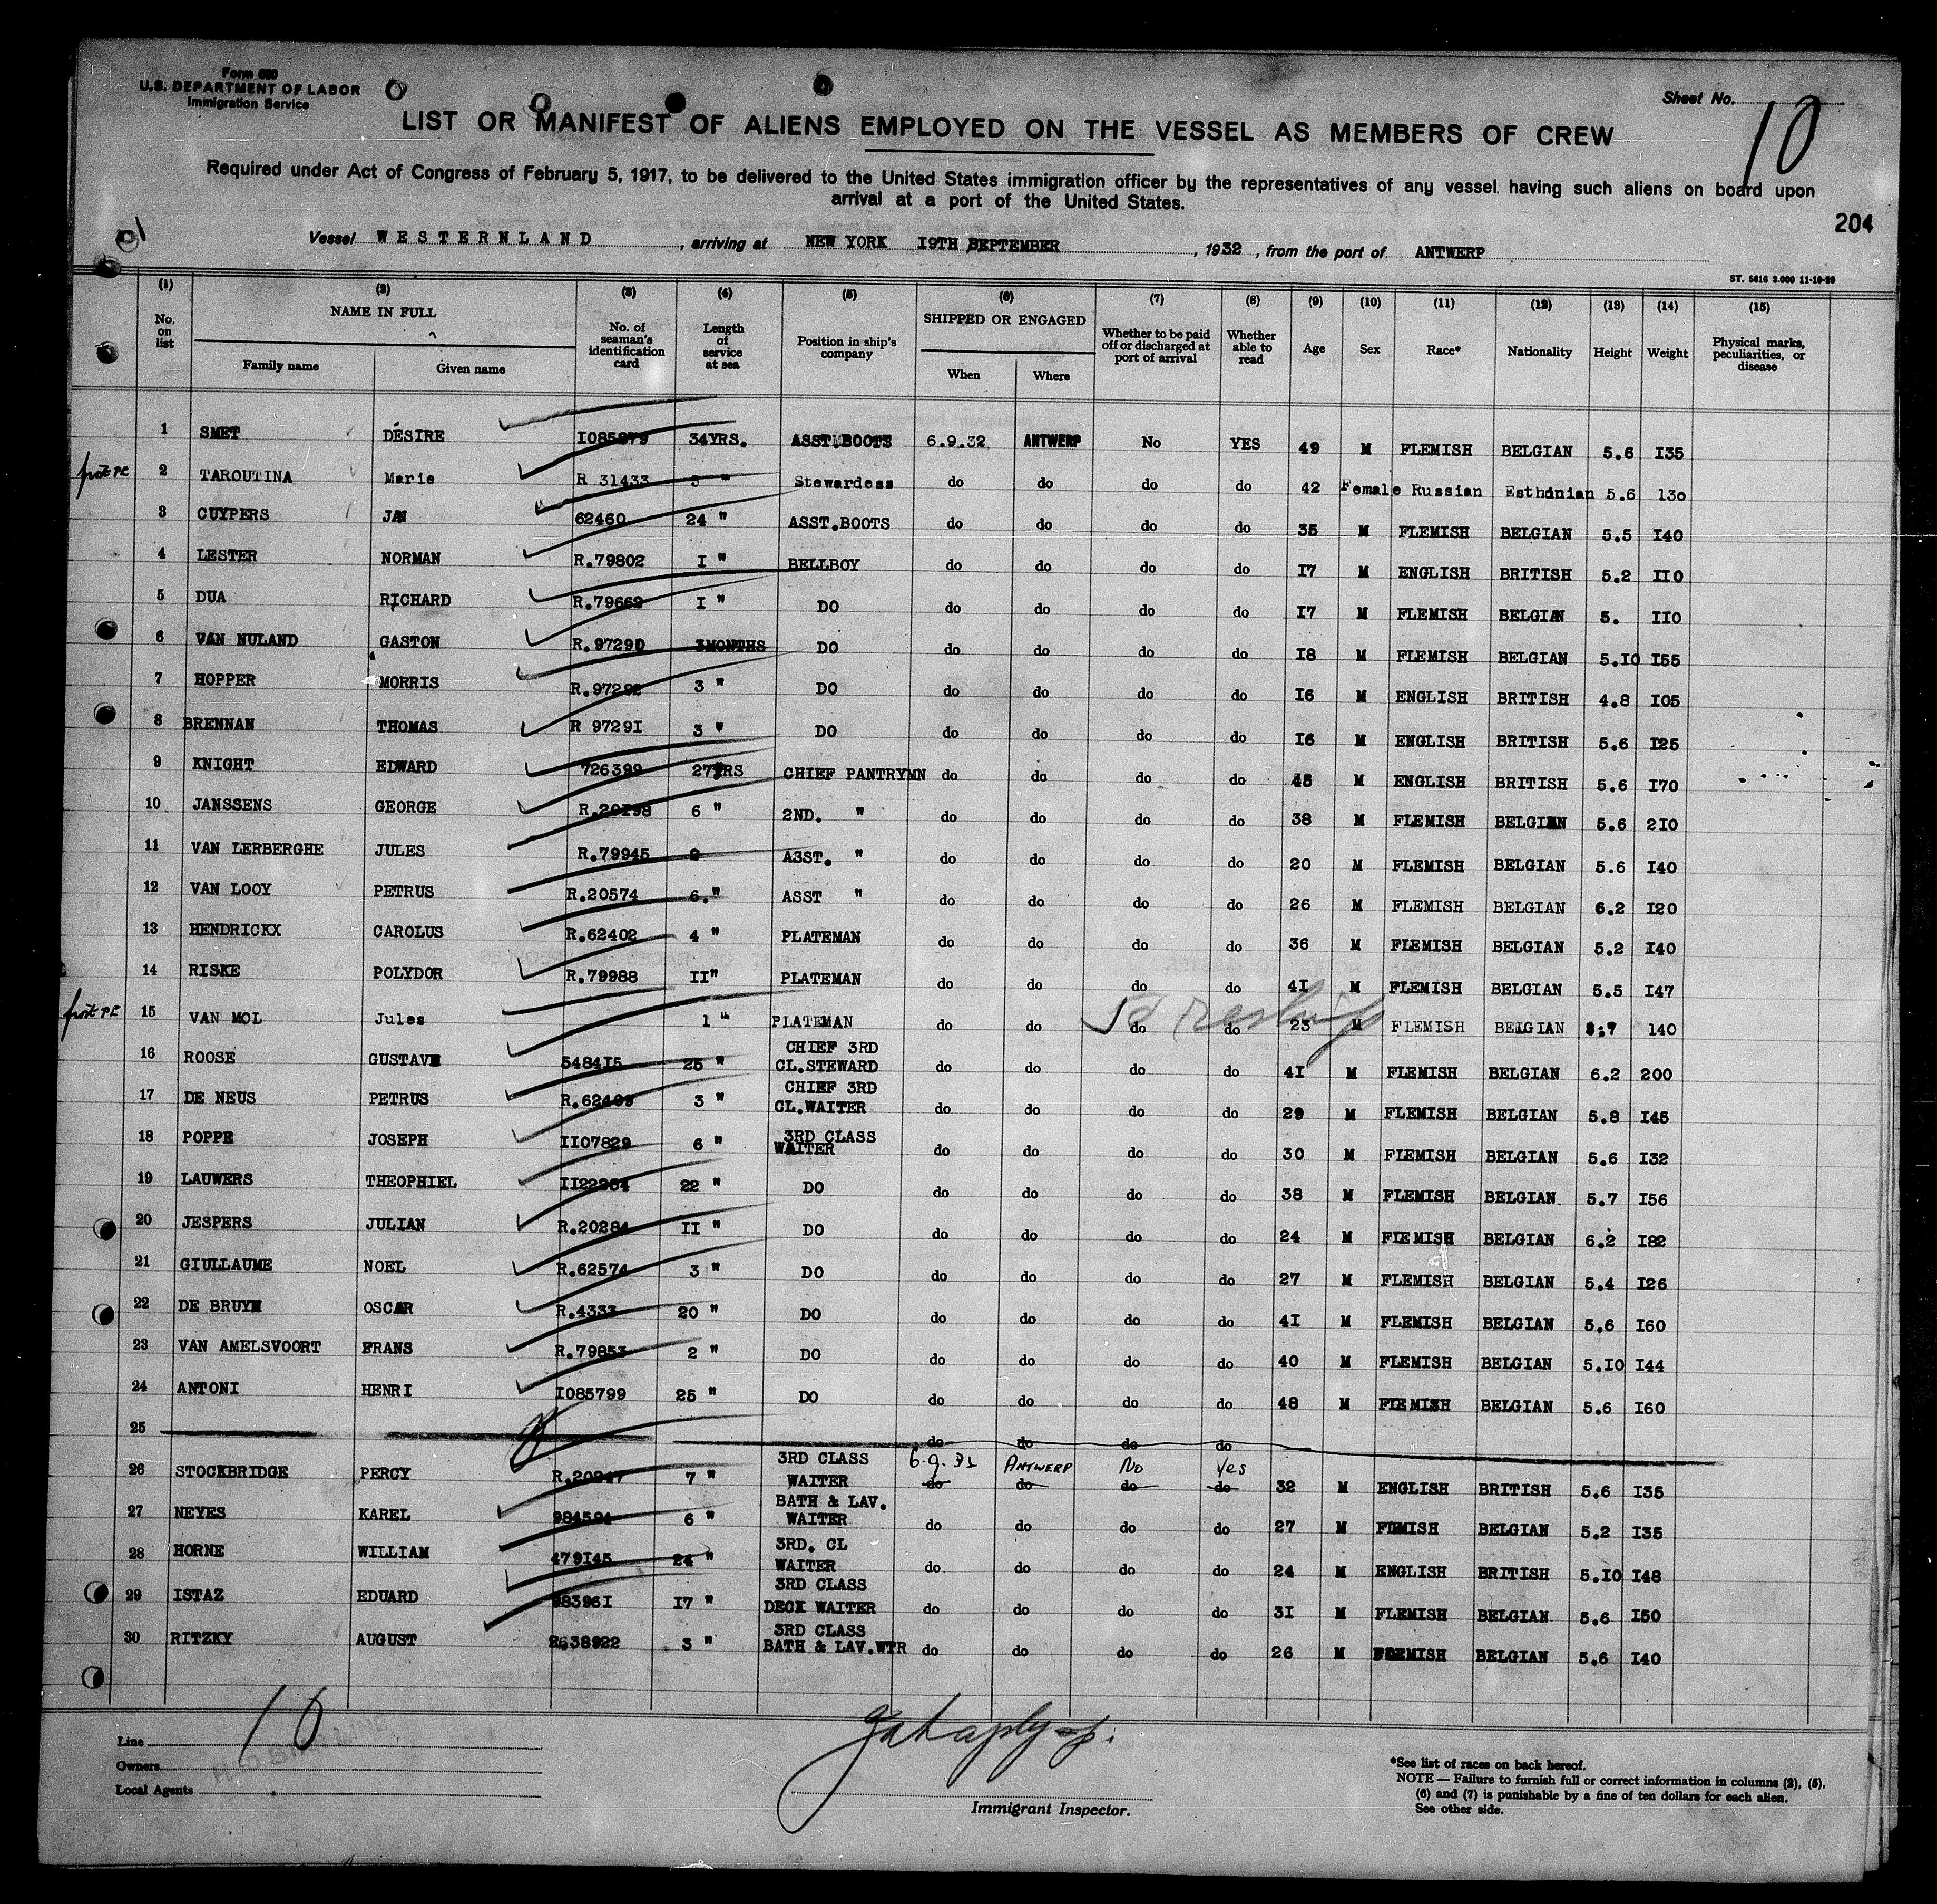 Form 680
U.S. DEPARTMENT OF LABOR
Immigration Service
Sheet No. 10
LIST OR MANIFEST OF ALIENS EMPLOYED ON THE VESSEL AS MEMBERS OF CREW
Required under Act of Congress of February 5, 1917, to be delivered to the United States immigration officer by the representatives of any vessel having such aliens on board upon
arrival at a port of the United States.
204
Vessel WESTERNLAND, arriving at NEW YORK I9TH SEPTEMBER, 1932, from the port of ANTWERP
ST. 5616 3.000 11-10-29
(1) (2) (3) (4) (5) (6) (7) (8) (9) (10) (11) (12) (13) (14) (15)
No. on list NAME IN FULL Family name Given name No. of seaman's identification card Length of service at sea Position in ship's company SHIPPED OR ENGAGED When Where Whether to be paid off or discharged at port of arrival Whether able to read Age Sex Race* Nationality Height Weight Physical marks, peculiarities, or disease
1 SMET DÉSIRE I085879 34YRS. ASST.BOOTS 6.9.32 ANTWERP No YES 49 M FLEMISH BELGIAN 5.6 I35
2 TAROUTINA Marie R 31433 5 " Stewardess do do do do 42 Female Russian Esthonian 5.6 130
3 CUYPERS JAN 62460 24 " ASST.BOOTS do do do do 35 M FLEMISH BELGIAN 5.5 I40
4 LESTER NORMAN R.79802 I " BELLBOY do do do do I7 M ENGLISH BRITISH 5.2 II0
5 DUA RICHARD R.79662 I " DO do do do do I7 M FLEMISH BELGIAN 5. II0
6 VAN NULAND GASTON R.97290 3MONTHS DO do do do do I8 M FLEMISH BELGIAN 5.I0 I55
7 HOPPER MORRIS R.97292 3 " DO do do do do I6 M ENGLISH BRITISH 4.8 I05
8 BRENNAN THOMAS R 9729I 3 " DO do do do do I6 M ENGLISH BRITISH 5.6 I25
9 KNIGHT EDWARD 726399 27YRS CHIEF PANTRYMN do do do do 45 M ENGLISH BRITISH 5.6 I70
10 JANSSENS GEORGE R.20I98 6 " 2ND. " do do do do 38 M FLEMISH BELGIAN 5.6 2I0
11 VAN LERBERGHE JULES R.79945 2 ASST. " do do do do 20 M FLEMISH BELGIAN 5.6 I40
12 VAN LOOY PETRUS R.20574 6." ASST " do do do do 26 M FLEMISH BELGIAN 6.2 I20
13 HENDRICKX CAROLUS R.62402 4 " PLATEMAN do do do do 36 M FLEMISH BELGIAN 5.2 I40
14 RISKE POLYDOR R.79988 II" PLATEMAN do do do do 4I M FLEMISH BELGIAN 5.5 I47
15 VAN MOL Jules 1 " PLATEMAN do do do do 23 M FLEMISH BELGIAN 5:7 140
16 ROOSE GUSTAVE 5484I5 25 " CHIEF 3RD CL.STEWARD do do do do 4I M FLEMISH BELGIAN 6.2 200
17 DE NEUS PETRUS R.62409 3 " CHIEF 3RD CL.WAITER do do do do 29 M FLEMISH BELGIAN 5.8 I45
18 POPPE JOSEPH II07829 6 " 3RD CLASS WAITER do do do do 30 M FLEMISH BELGIAN 5.6 I32
19 LAUWERS THEOPHIEL II22954 22 " DO do do do do 38 M FLEMISH BELGIAN 5.7 I56
20 JESPERS JULIAN R.20284 II " DO do do do do 24 M FLEMISH BELGIAN 6.2 I82
21 GIULLAUME NOEL R.62574 3 " DO do do do do 27 M FLEMISH BELGIAN 5.4 I26
22 DE BRUYN OSCAR R.4333 20 " DO do do do do 4I M FLEMISH BELGIAN 5.6 I60
23 VAN AMELSVOORT FRANS R.79853 2 " DO do do do do 40 M FLEMISH BELGIAN 5.I0 I44
24 ANTONI HENRI I085799 25 " DO do do do do 48 M FLEMISH BELGIAN 5.6 I60
25 do do do do
26 STOCKBRIDGE PERCY R.20947 7 " 3RD CLASS WAITER 6.9.32 ANTWERP No Yes do do do do 32 M ENGLISH BRITISH 5.6 I35
27 NEYES KAREL 984594 6 " BATH & LAV. WAITER do do do do 27 M FLMISH BELGIAN 5.2 I35
28 HORNE WILLIAM 479I45 24 " 3RD. CL WAITER do do do do 24 M ENGLISH BRITISH 5.I0 I48
29 ISTAZ EDUARD 98396I I7 " 3RD CLASS DECK WAITER do do do do 3I M FLEMISH BELGIAN 5.6 I50
30 RITZKY AUGUST R638922 3 " 3RD CLASS BATH & LAV.WTR do do do do 26 M FLEMISH BELGIAN 5.6 I40
10
Line
Owners
Local Agents
Immigrant Inspector.
*See list of races on back hereof.
NOTE — Failure to furnish full or correct information in columns (2), (5),
(6) and (7) is punishable by a fine of ten dollars for each alien.
See other side.